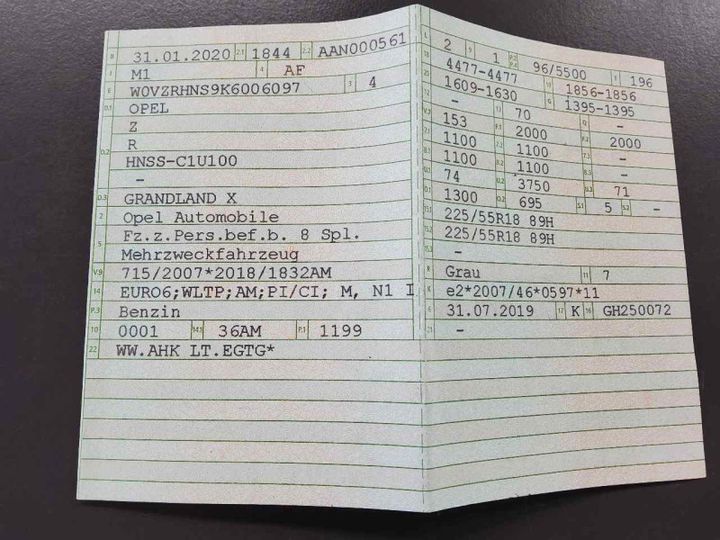 B 31.01.2020 2.1 1844 2.2 AAN000561
J M1 4 AF
E W0VZRHNS9K6006097 3 4
D.1 OPEL
Z
D.2 R
HNSS-C1U100
-
D.3 GRANDLAND X
2 Opel Automobile
5 Fz.z.Pers.bef.b. 8 Spl.
Mehrzweckfahrzeug
V.9 715/2007*2018/1832AM
14 EURO6;WLTP;AM;PI/CI; M, N1 I
P.3 Benzin
10 0001 14.1 36AM P.1 1199
22 WW.AHK LT.EGTG*
L 2 9 1 P.2 P.4 96/5500 T 196
18 4477-4477 19 1856-1856
20 1609-1630 G 1395-1395
12 - 13 70 Q -
V.7 153 F.1 2000 F.2 2000
7.1 1100 7.2 1100 7.3 -
8.1 1100 8.2 1100 8.3 -
U.1 74 U.2 3750 U.3 71
O.1 1300 O.2 695 S.1 5 S.2 -
15.1 225/55R18 89H
15.2 225/55R18 89H
15.3 -
R Grau 11 7
K e2*2007/46*0597*11
6 31.07.2019 17 K 16 GH250072
21 -